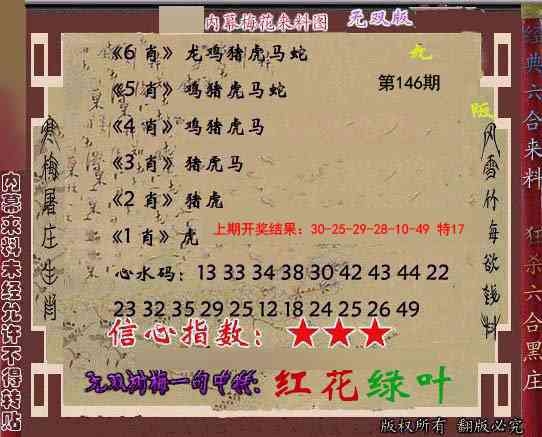 内幕梅花来料图 无双版
《6 肖》龙鸡猪虎马蛇
《5 肖》鸡猪虎马蛇
第146期
《4 肖》鸡猪虎马
《3 肖》猪虎马
《2 肖》猪虎
《1 肖》虎
上期开奖结果：30-25-29-28-10-49 特17
心水码：13 33 34 38 30 42 43 44 22
23 32 35 29 25 12 18 24 25 26 49
信心指数：★★★
红花绿叶
版权所有 翻版必究
寒梅屠庄生肖
内幕来料未经允许不得转贴
经典六合来料 狂杀六合黑庄